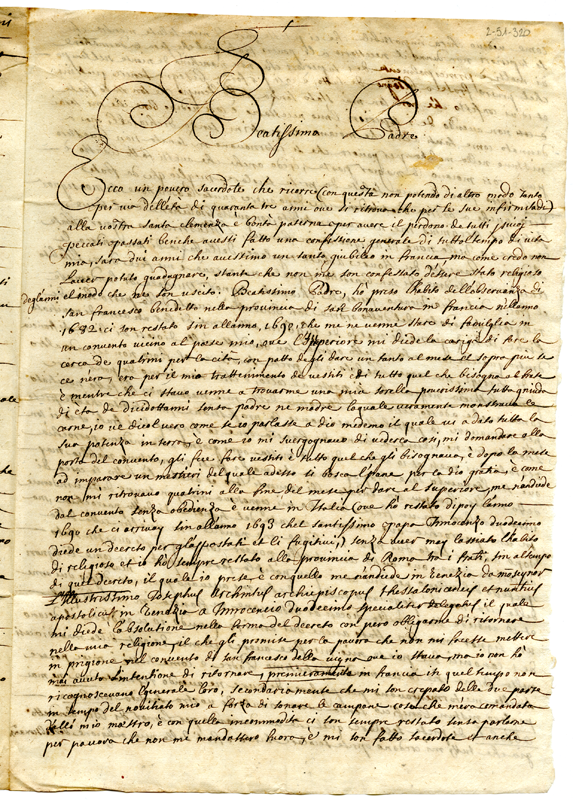 2-51-320
Beatissimo Padre
Ecco un povero sacerdote che ricorre (con questa non potendo di altro modo tanto
per via dell'età di quaranta tre anni oue si ritrova che per le sue infirmitade)
alla vostra santa clemenza è bontà paterna per avere il perdono de tutti suoi
peccati passati benche avesti fatto una confessione generale di tutto l'tempo di vita
mia, sarà dui anni che avessimo un santo giubileo in francia, ma come credo non
l'aver potuto guadagnare, stante che non me son confessato d'essere stato religioso
degl'anni el modo che ne son uscito. Beatissimo Padre, hò preso l'habito dell'observanza di
san francesco benedetto nella provincia di san Bonaventura in francia nell'anno
1682 ci son restato sin all'anno 1690, che me ne venne stare di
un convento vicino al paese mio, oue l'superiore mi diede la cariga di fare la
cerca de quatrini per la cità, con patto de gli dare un tanto al mese el sopra più
era per il mio trattenimento de vestiti è di tutto quel che bisogna
è mentre che ci stavo venne a trouarme una mia sorella poverissima tutta gnuda
di età de diecidott'anni senza padre ne madre la quale veramente monstrava la
carne, io ve dico l'vero come se io parlasse a dio medemo il quale vi a dato tutta la
sua potenza in terra, è come io mi svergognavo di vederea così, mi domandare alla
porta del convento, gli fece fare vestiti è tutto quel che gli bisognava, è dopo la mese
ad imparare un mestieri del quale adesso si busca l'pane per la dio gratia, è come
non mi ritrovavo quatrini alla fine del mese per dare al superiore, me n'andiede
dal convento senza obedienza è venne in Italia (oue hò restato di poy l'anno
1690 che ci arrivay sin all'anno 1693 chel santissimo papa Innocenzo duodecimo
diede un decreto per gl'apostati et li fugitivi) senza aver may lassato l'habito
di religioso et io hò sempre restato alla provincia di Roma tra i frati, sin al tempo
di quel decreto, il quale io prese, è con quello me n'andiede in Venezia da monsignor
Illustrissimo Josephus Archintus archiepiscopus thessalonicensis et nuntius
apostolicus in Venezia a Innocencio duodecimo specialiter delegatus il quale
mi diede l'absolutione nella forma del decreto con però obligarme di ritornare
nella mia religione, il che gli promise per la pavora che non mi facesse mettere
in prigione nel convento di san francesco della vigna oue io stava, ma io non hò
mai avuto l'intentione di ritornare, premieramente in francia in quel tempo non
ricognoscevano l'generale loro, secondariamente che mi son crepato delle due parte
in tempo del novitiato mio a forza di sonare le campane cosa che m'era comandata
dallo mio maestro, è con quella incommodità ci son sempre restato senza parlarne
per pavora che non me mandassero fuora, è mi son fatto sacerdote et anche